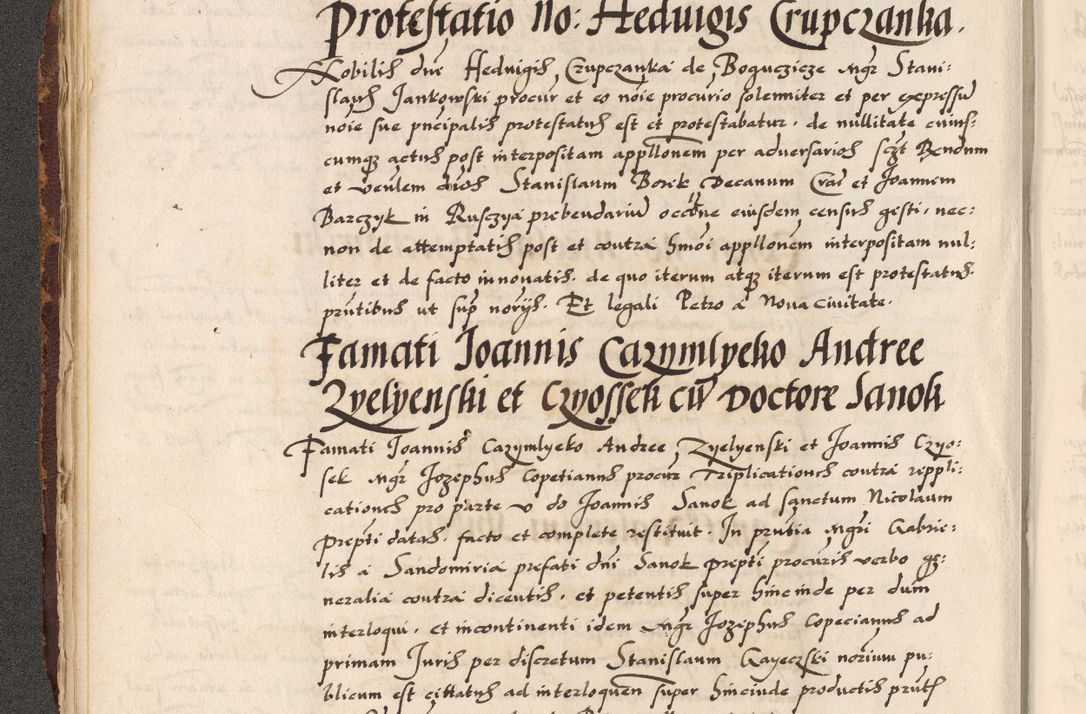 Protestatio No: Heduigis Crupczanka.
Nobilis dne Heduigis Crupczanka de Boguczicze Mgr Stani:
slaus Jankowski procur et eo noie procurio solenniter et per expressu
noie sue pncipalis protestatus est et protestabatur. de nullitate cuius:
cumqz actus post interpositam appllonem per adversarios sczt Rendum
et venlem dnos Stanislaum Borek Decanum Crac et Joannem
Barczyk in Rusczya prebendariu occone eiusdem census gesti, nec:
non de attemptatis post et contra hmoi appllonem interpositam nul:
liter et de facto innovatis. de quo iterum atqz iterum est protestatus.
prntibus ut sup norijs. Et legali Petro a Nova Civitate.
Famati Joannis Cazymlyeko Andree
Zyelyenski et Czyossek cu Doctore Sanok
Famati Joannis Cazymlyeko Andree Zyelyenski et Joannis Czyo:
sek Mgr Jozephus Copetianus procur Triplicationes contra reppli:
cationes pro parte v do Joannis Sanok ad sanctum Nicolaum
prepti datas. facto et complete restituit. In prntia Mgri Gabrie:
lis a Sandomiria prefati dni Sanok prepti procuris verbo ge:
neralia contra dicentis. et petentis super hincinde per dum
interloqui. et incontinenti idem Mgr Jozephus Copecianus ad
primam Juris per discretum Stanislaum Gayeczski norium pu:
blicum est cittatus ad interloquen super hincinde productis prnts